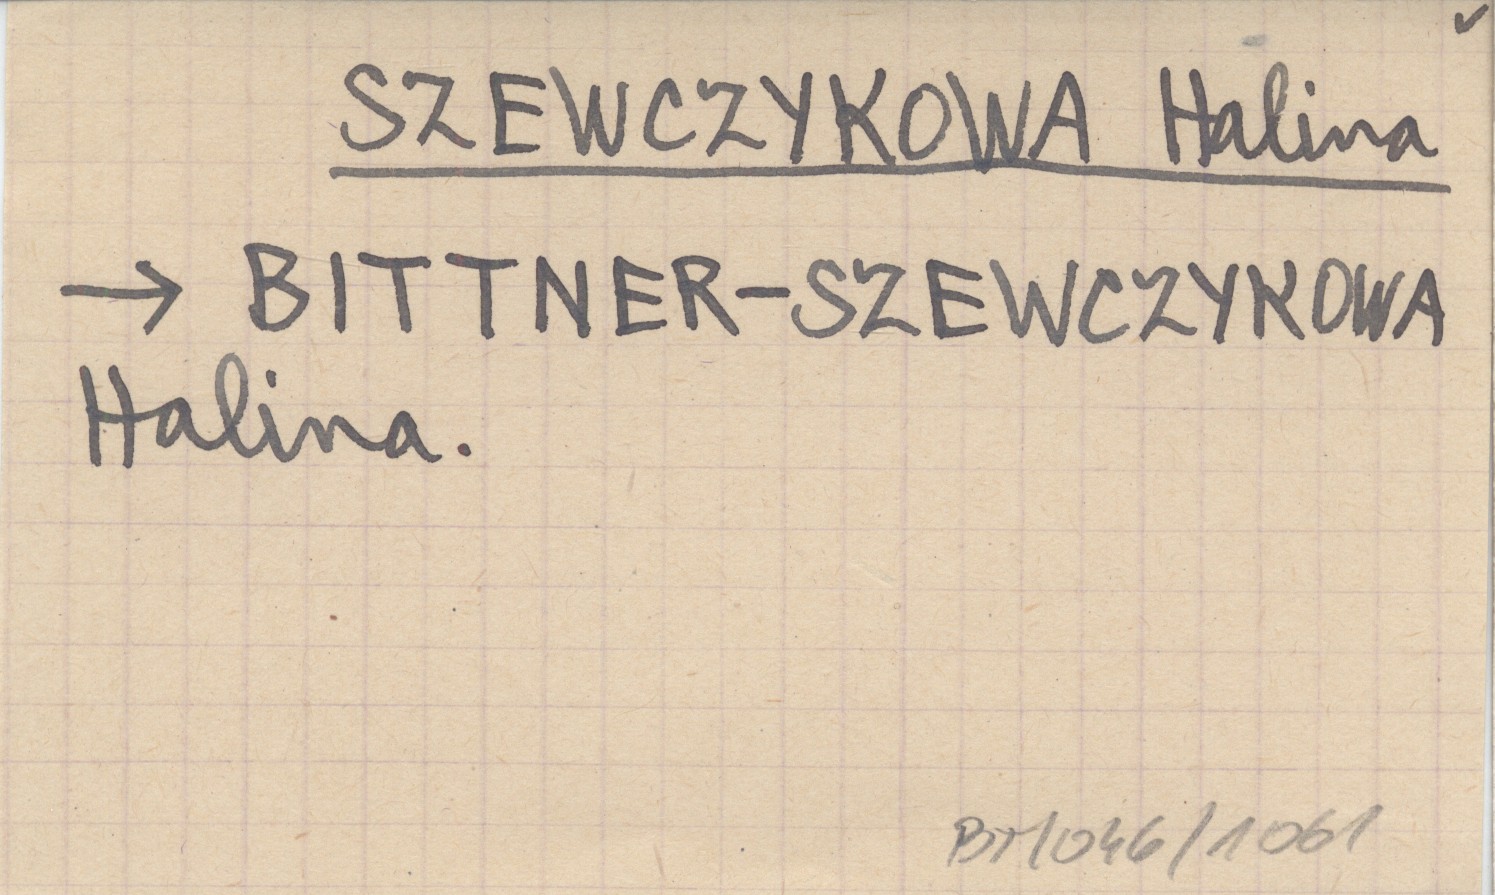 SZEWCZYKOWA Halina
→ BITTNER-SZEWCZYKOWA
Halina.
BM/046/1061